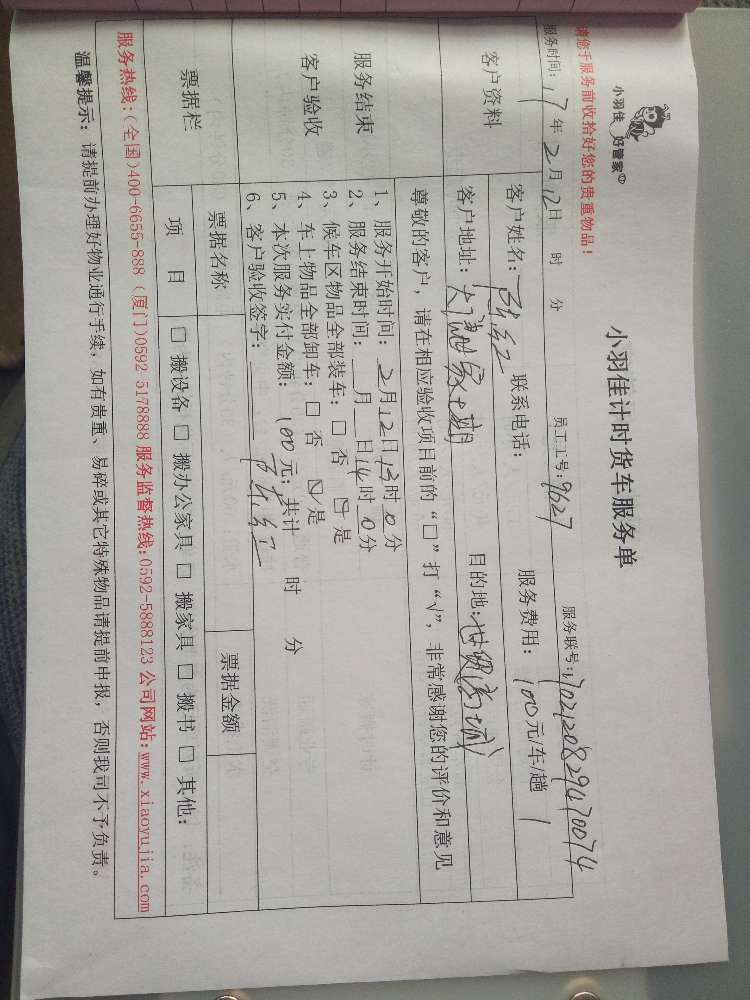 小羽佳 好管家
请您于服务前收拾好您的贵重物品！
小羽佳计时货车服务单
服务时间：17年2月12日 时 分 员工工号：9627 服务联号：1702120829470074
客户资料
客户姓名： 联系电话： 服务费用：100元/车/趟 1
客户地址： 目的地：世贸商城
尊敬的客户，请在相应验收项目前的“□”打“√”，非常感谢您的评价和意见
服务结束
客户验收
1、服务开始时间：2月12日13时0分
2、服务结束时间：__月__日14时0分
3、候车区物品全部装车：□ 否 ☑ 是
4、车上物品全部卸车：□ 否 ☑ 是
5、本次服务实付金额：100元；共计 时 分
6、客户验收签字：
票据栏
票据名称 票据金额
项 目 □ 搬设备 □ 搬办公家具 □ 搬家具 □ 搬书 □ 其他：
服务热线：（全国）400-6655-888（厦门）0592 5178888 服务监督热线：0592-5888123 公司网站：www.xiaoyujia.com
温馨提示：请提前办理好物业通行手续，如有贵重、易碎或其它特殊物品请提前申报，否则我司不予负责。